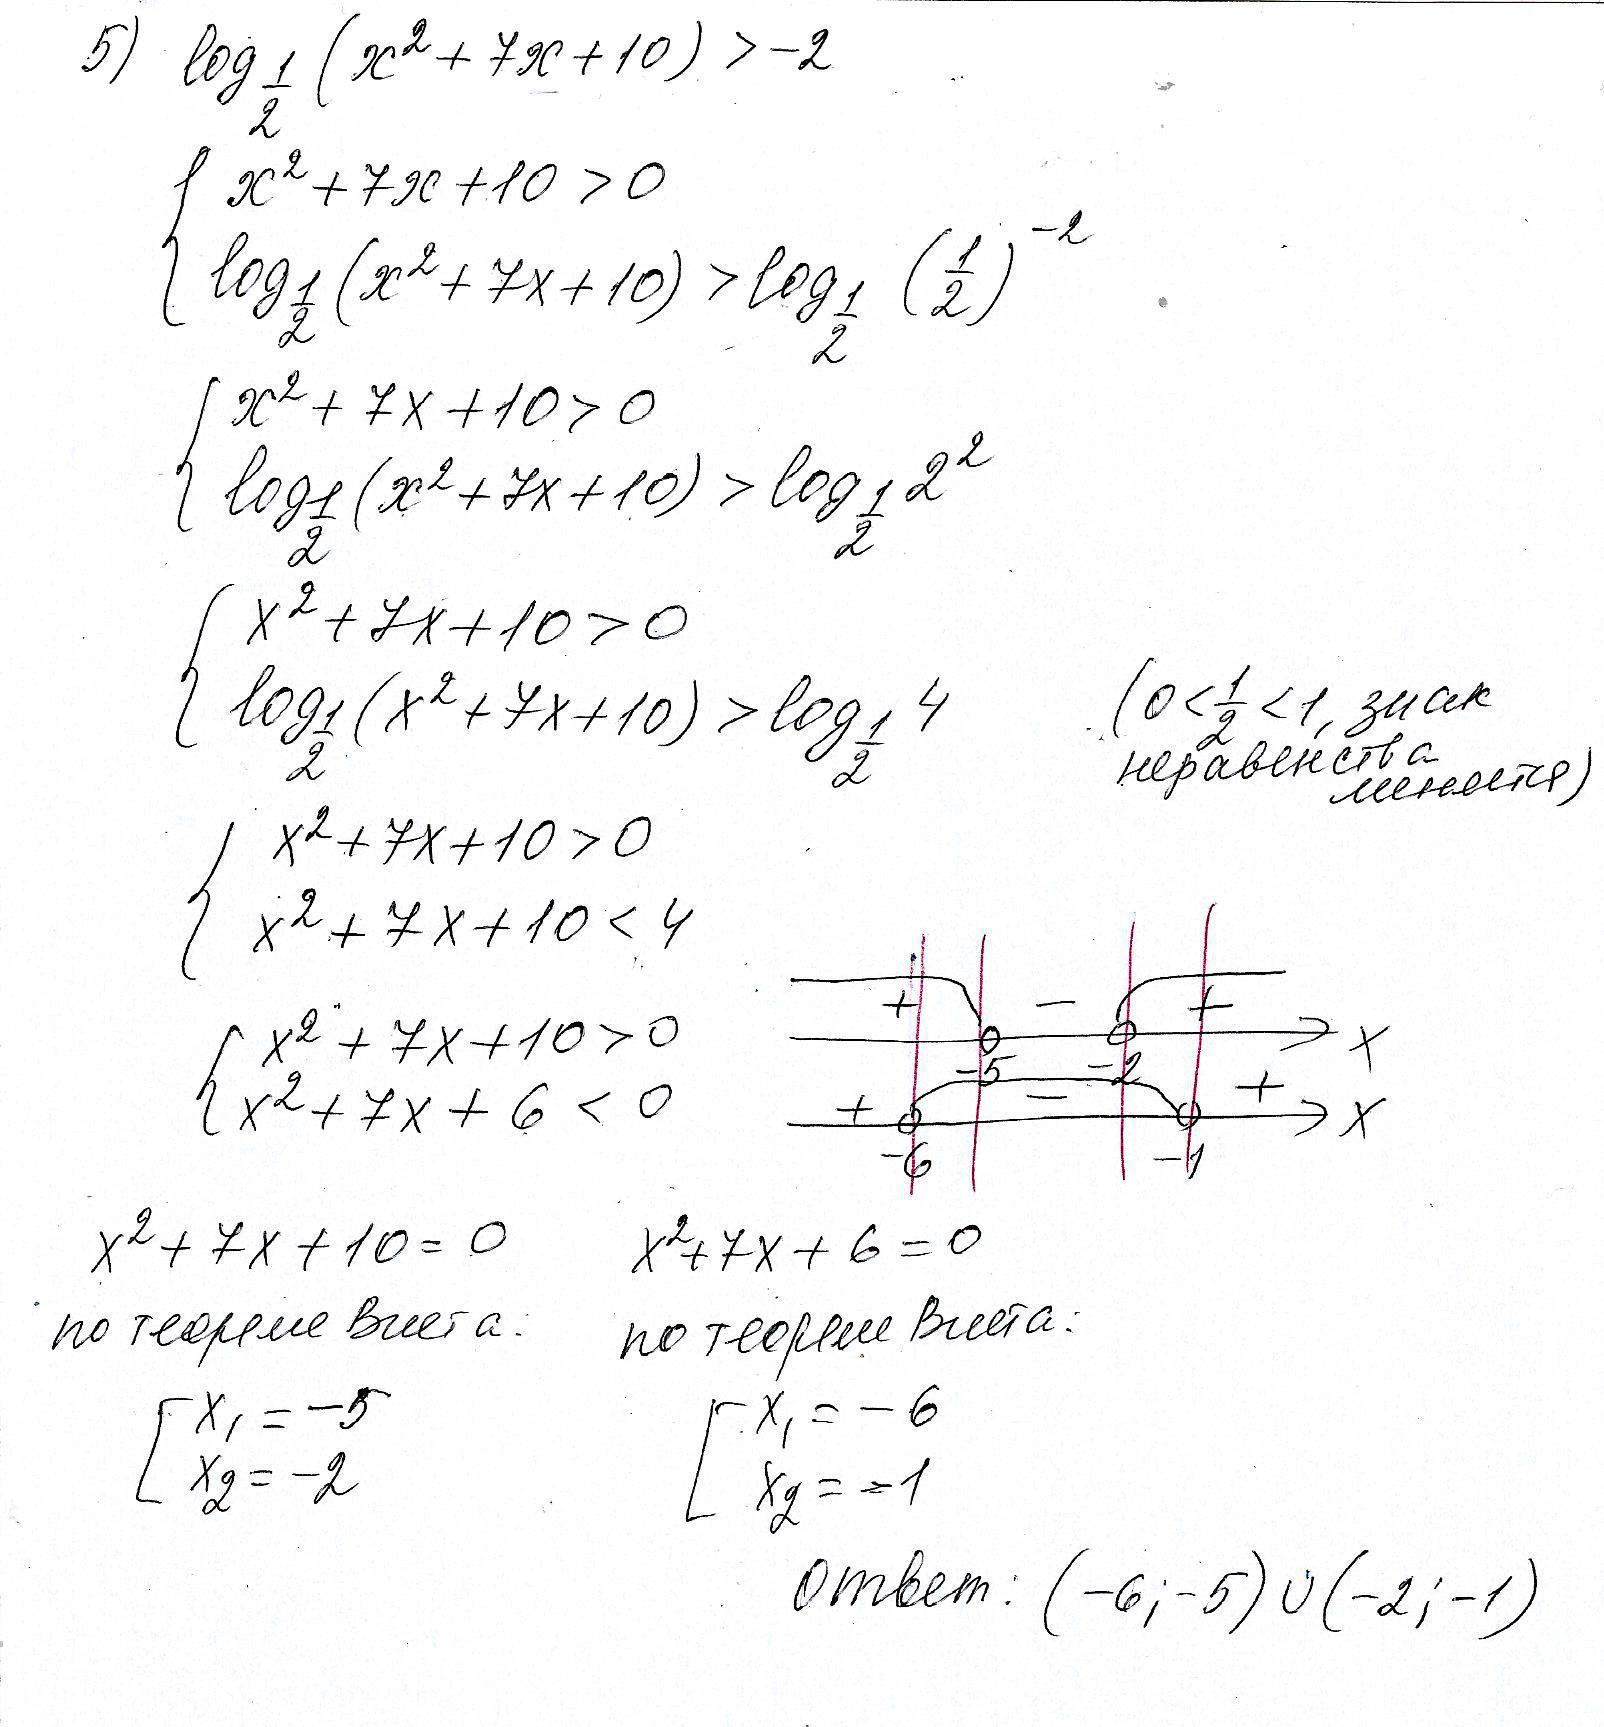 5) log_{1/2} (x² + 7x + 10) > -2
{ x² + 7x + 10 > 0
{ log_{1/2} (x² + 7x + 10) > log_{1/2} (1/2)^{-2}
{ x² + 7x + 10 > 0
{ log_{1/2} (x² + 7x + 10) > log_{1/2} 2²
{ x² + 7x + 10 > 0
{ log_{1/2} (x² + 7x + 10) > log_{1/2} 4
(0 < 1/2 < 1, знак
неравенства
меняется)
{ x² + 7x + 10 > 0
{ x² + 7x + 10 < 4
{ x² + 7x + 10 > 0
{ x² + 7x + 6 < 0
+ - + x
-5 -2
+ - + x
-6 -1
x² + 7x + 10 = 0
по теореме Виета:
[ x₁ = -5
[ x₂ = -2
x² + 7x + 6 = 0
по теореме Виета:
[ x₁ = -6
[ x₂ = -1
Ответ: (-6; -5) ∪ (-2; -1)